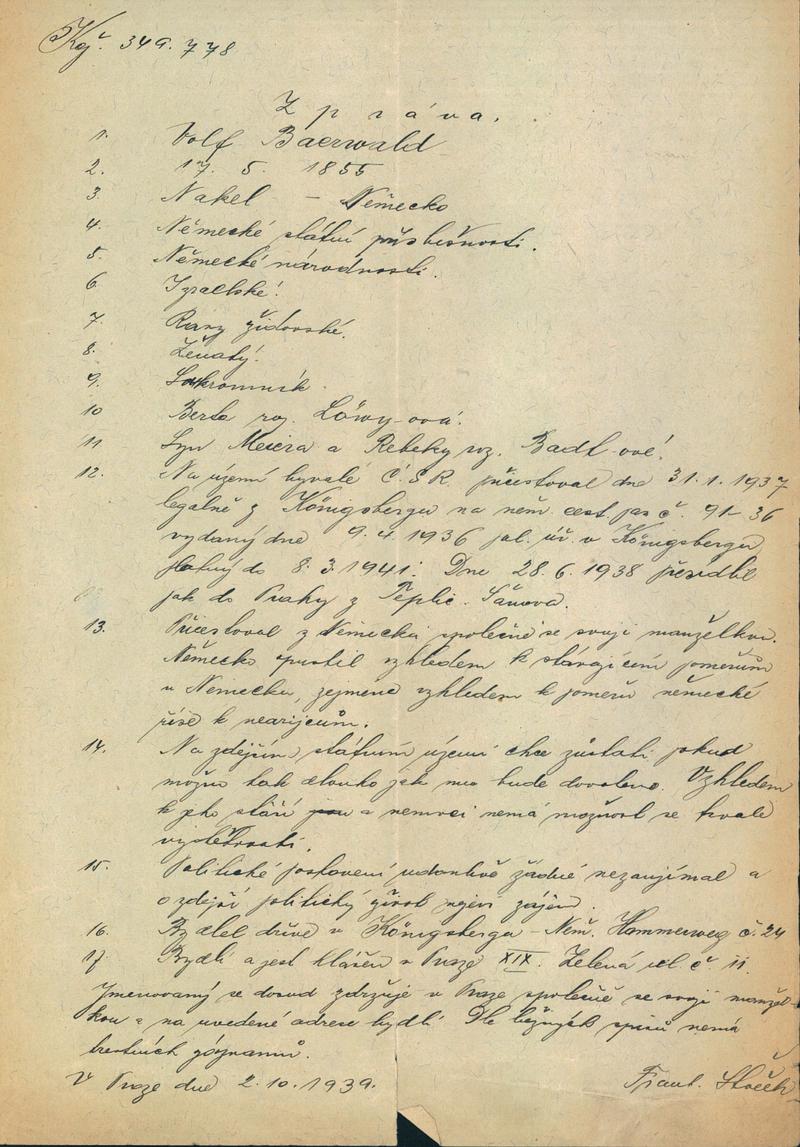 349.778
Zpráva.
1. Volf Baerwald
2. 17. 5. 1855
3. Nakel - Německo
4. Německé státní příslušnosti.
5. Německé národnosti.
6. Izraelské.
7. Rasy židovské.
8. Ženatý.
9. Soukromník.
10 Berta roz. Löwy-ová.
11 Syn Meiera a Rebeky roz. Badt-ové.
12. Na území bývalé Č.S.R. přicestoval dne 31.1.1937
legálně z Königsbergu na něm. cest. pas č. 91-36
vydaný dne 9.4.1936 pol. úř. v Königsbergu
platný do 8.3.1941. Dne 28.6.1938 přesídlil
pak do Prahy z Teplic-Šanova.
13. Přicestoval z Německa společně se svojí manželkou.
Německo opustil vzhledem k stávajícím poměrům
v Německu, zejména vzhledem k poměru německé
říše k nearijcům.
14. Na zdejším státním území chce zůstati pokud
možno tak dlouho jak mu bude dovoleno. Vzhledem
k jeho stáří a nemoci nemá možnost se trvale
vystěhovati.
15. Politické postavení údanlivě žádné nezaujímal a
o zdejší politický život nejeví zájem.
16. Bydlel dříve v Königsbergu - Něm. Hammerweg č. 24
17. Bydlí a jest hlášen v Praze XIX. Zelená ul. č. 11.
Jmenovaný se dosud zdržuje v Praze společně se svojí manžel-
kou a na uvedené adrese bydlí. Dle zdejších spisů nemá
trestních záznamů.
V Praze dne 2.10.1939.
Frant.